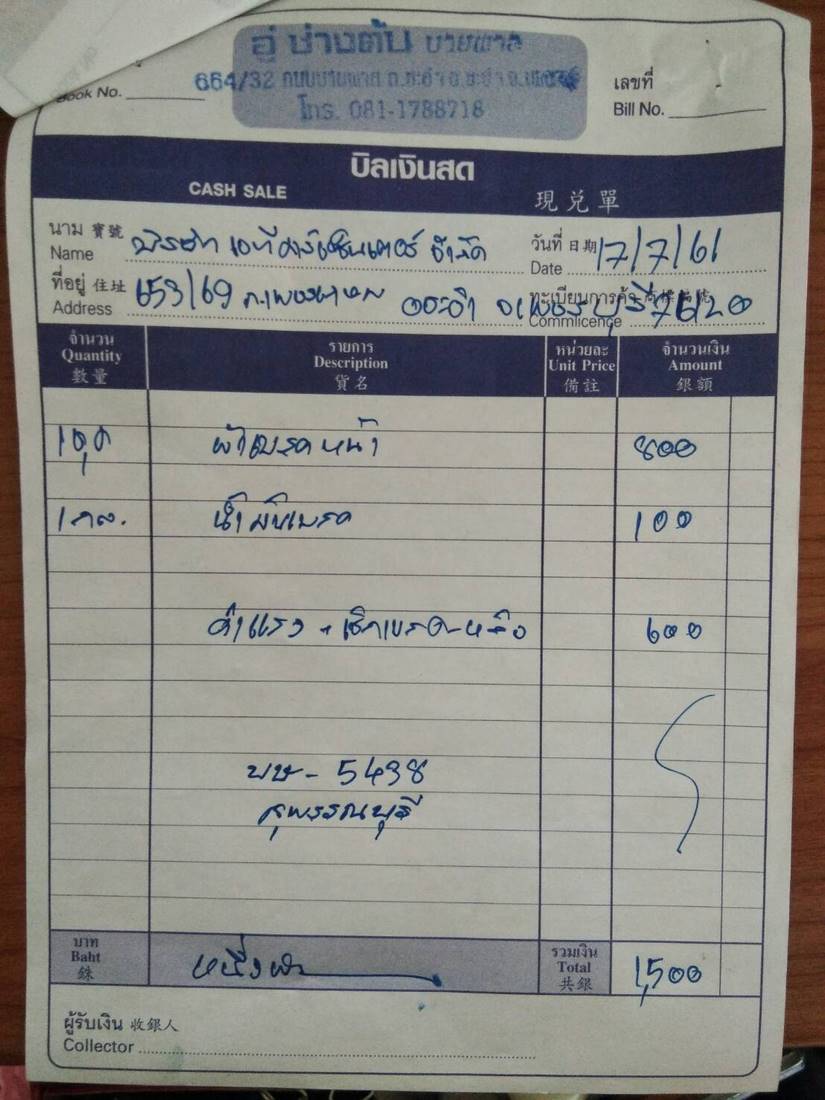 อู่ ช่างต้น บายพาส
664/32 ถนนบายพาส ต.ชะอำ อ.ชะอำ จ.เพชรบุรี
โทร. 081-1788718
Book No.
เลขที่
Bill No.
บิลเงินสด
CASH SALE 現兌單
นาม 寶號
Name บริษัท เอทีคาร์เซ็นเตอร์ จำกัด
วันที่ 日期
Date 17/7/61
ที่อยู่ 住址
Address 653/69 ถ.เพชรเกษม อ.ชะอำ จ.เพชรบุรี 76120
ทะเบียนการค้า 商標編號
Commlicence
จำนวน รายการ หน่วยละ จำนวนเงิน
Quantity Description Unit Price Amount
數量 貨名 備註 銀額
1ชุด ผ้าเบรคหน้า 800
น้ำมันเบรค 100
ค่าแรง + เช็คเบรค-หลัง 600
บษ - 5498
สุพรรณบุรี
บาท รวมเงิน
Baht หนึ่งพัน Total 1,500
銖 共銀
ผู้รับเงิน 收銀人
Collector